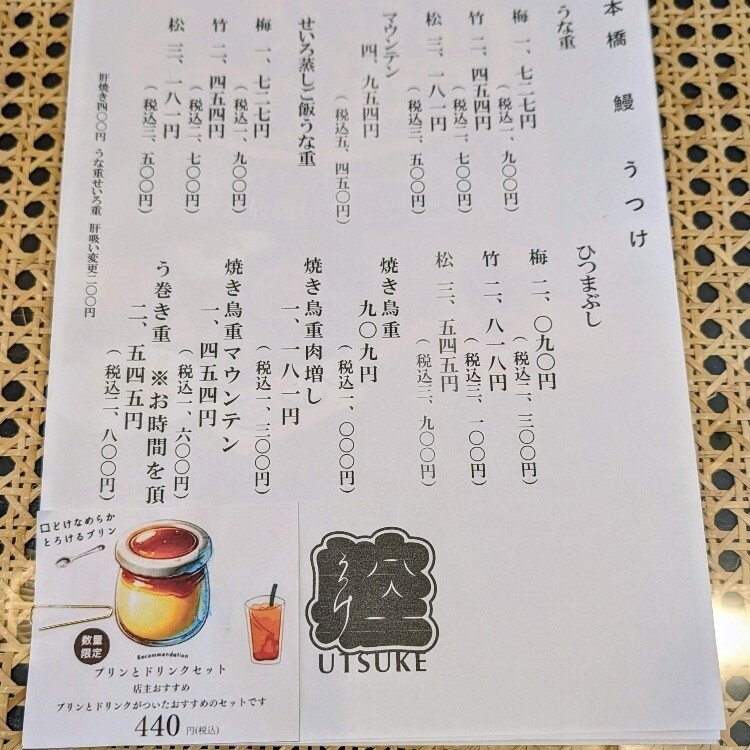 本橋 鰻 うつけ
うな重
梅 一、七二七円
(税込一、九〇〇円)
竹 二、四五四円
(税込二、七〇〇円)
松 三、一八一円
(税込三、五〇〇円)
マウンテン
四、九五四円
(税込五、四五〇円)
せいろ蒸しご飯うな重
梅 一、七二七円
(税込一、九〇〇円)
竹 二、四五四円
(税込二、七〇〇円)
松 三、一八一円
(税込三、五〇〇円)
ひつまぶし
梅 二、〇九〇円
(税込二、三〇〇円)
竹 二、八一八円
(税込三、一〇〇円)
松 三、五四五円
(税込三、九〇〇円)
焼き鳥重
九〇九円
(税込一、〇〇〇円)
焼き鳥重肉増し
一、一八一円
(税込一、三〇〇円)
焼き鳥重マウンテン
一、四五四円
(税込一、六〇〇円)
う巻き重 ※お時間を頂
二、五四五円
(税込二、八〇〇円)
肝焼き四〇〇円 うな重せいろ重 肝吸い変更二〇〇円
口どけなめらか
とろけるプリン
数量
限定
Recommendation
プリンとドリンクセット
店主おすすめ
プリンとドリンクがついたおすすめのセットです
440円(税込)
うつけ
UTSUKE